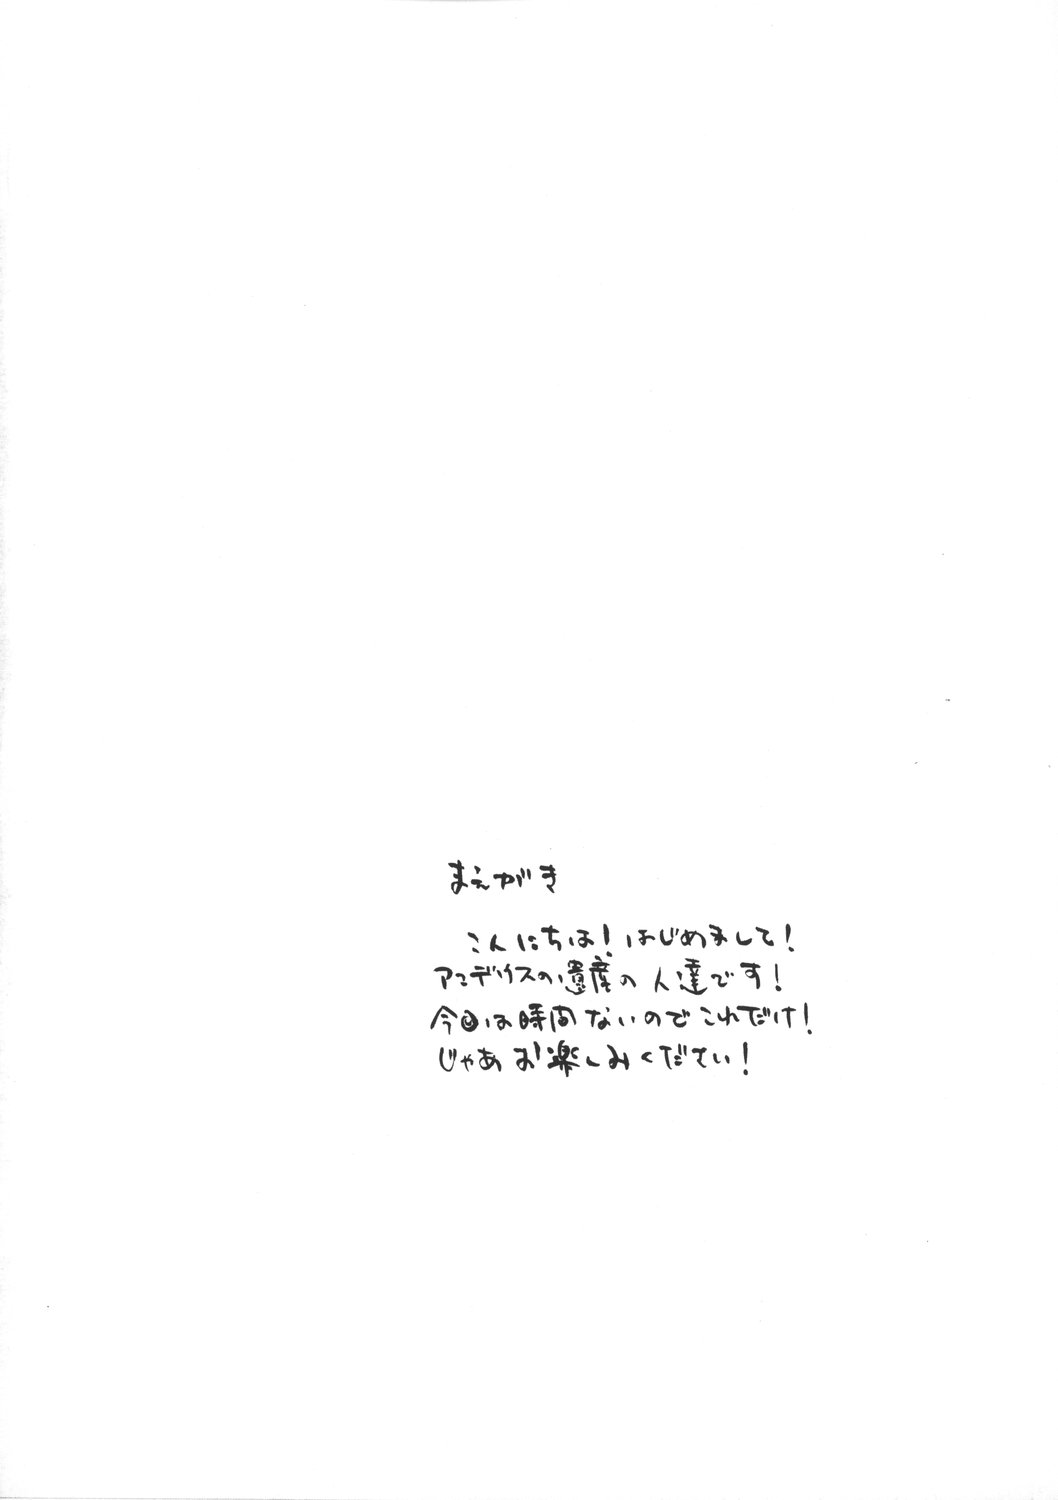 まえがき
こんにちは！はじめまして！
アンデリスの遺産の人達です！
今回は時間ないのでこれだけ！
じゃあお楽しみください！